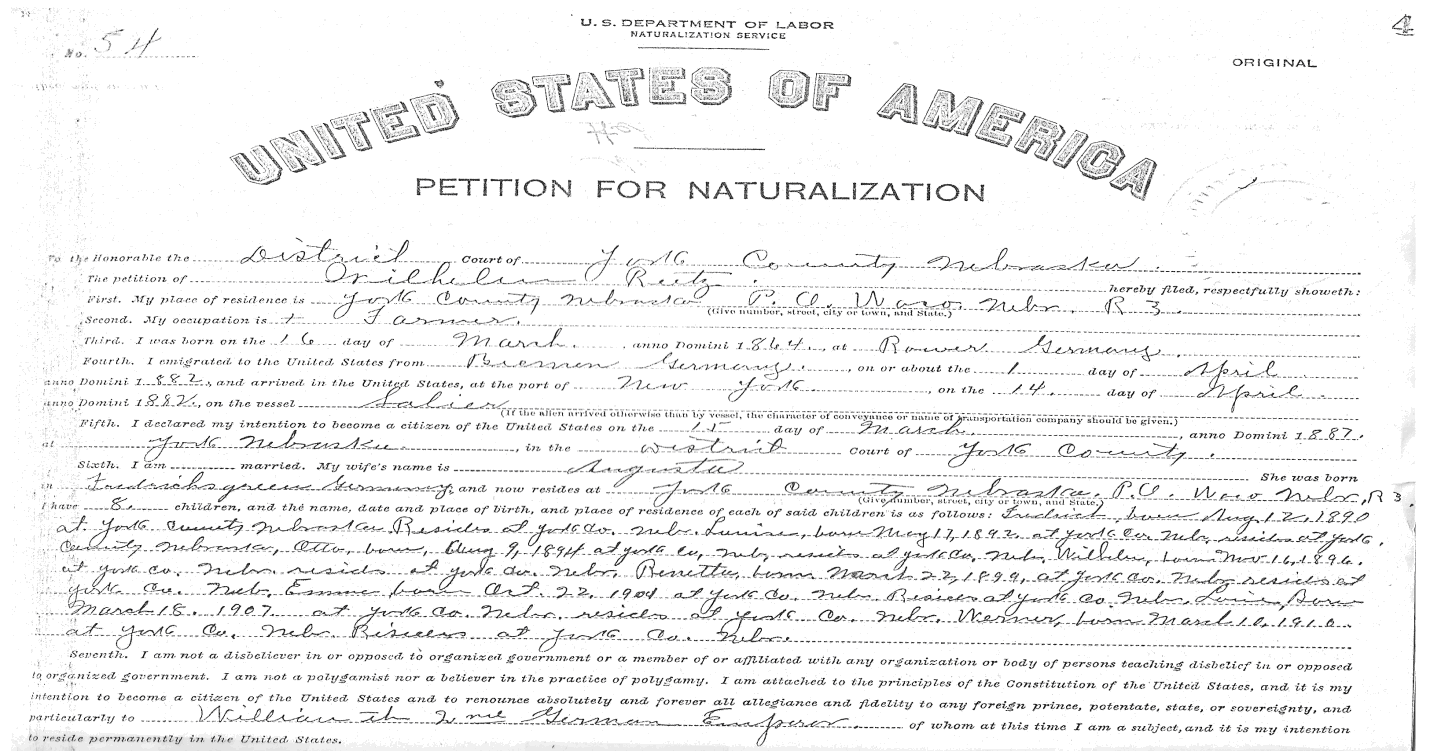 4
U. S. DEPARTMENT OF LABOR
NATURALIZATION SERVICE
No. 54
ORIGINAL
UNITED STATES OF AMERICA
PETITION FOR NATURALIZATION
To the Honorable the District Court of York County Nebraska.
The petition of Wilhelm Reetz. hereby filed, respectfully showeth:
First. My place of residence is York County Nebraska P. O. Waco, Nebr. R 3.
(Give number, street, city or town, and State.)
Second. My occupation is Farmer.
Third. I was born on the 16 day of March, anno Domini 1864, at Rower Germany.
Fourth. I emigrated to the United States from Bremen Germany, on or about the 1 day of April
anno Domini 1882, and arrived in the United States, at the port of New York, on the 14 day of April
anno Domini 1882, on the vessel Salier
(If the alien arrived otherwise than by vessel, the character of conveyance or name of transportation company should be given.)
Fifth. I declared my intention to become a citizen of the United States on the 15 day of March, anno Domini 1887.
at York Nebraska, in the District Court of York County.
Sixth. I am married. My wife's name is Augusta She was born
in Germany, and now resides at York County Nebraska. P.O. Waco Nebr, R 3
(Give number, street, city or town, and State.)
I have 8 children, and the name, date and place of birth, and place of residence of each of said children is as follows: Fredrick, born Aug 12, 1890
at York County Nebraska Resides at York Co. Nebr. Louise, born May 17, 1892 at York Co. Nebr. resides at York
County Nebraska, Otto, born, Aug 9, 1894 at York Co, Neb, resides at York Co. Nebr. born Nov 16, 1896.
at York Co. Nebr. resids at York Co. Nebr. born March 22, 1899, at York Co. Nebr. resides at
York Co. Neb. born Oct. 22, 1904 at York Co. Neb. Resides at York Co. Nebr. Born
March 18. 1907. at York Co. Nebr. resides at York Co. Nebr. Werner, born March 10, 1910.
at York Co. Nebr at York Co. Nebr.
Seventh. I am not a disbeliever in or opposed to organized government or a member of or affiliated with any organization or body of persons teaching disbelief in or opposed
to organized government. I am not a polygamist nor a believer in the practice of polygamy. I am attached to the principles of the Constitution of the United States, and it is my
intention to become a citizen of the United States and to renounce absolutely and forever all allegiance and fidelity to any foreign prince, potentate, state, or sovereignty, and
particularly to William German Emperor. of whom at this time I am a subject, and it is my intention
to reside permanently in the United States.